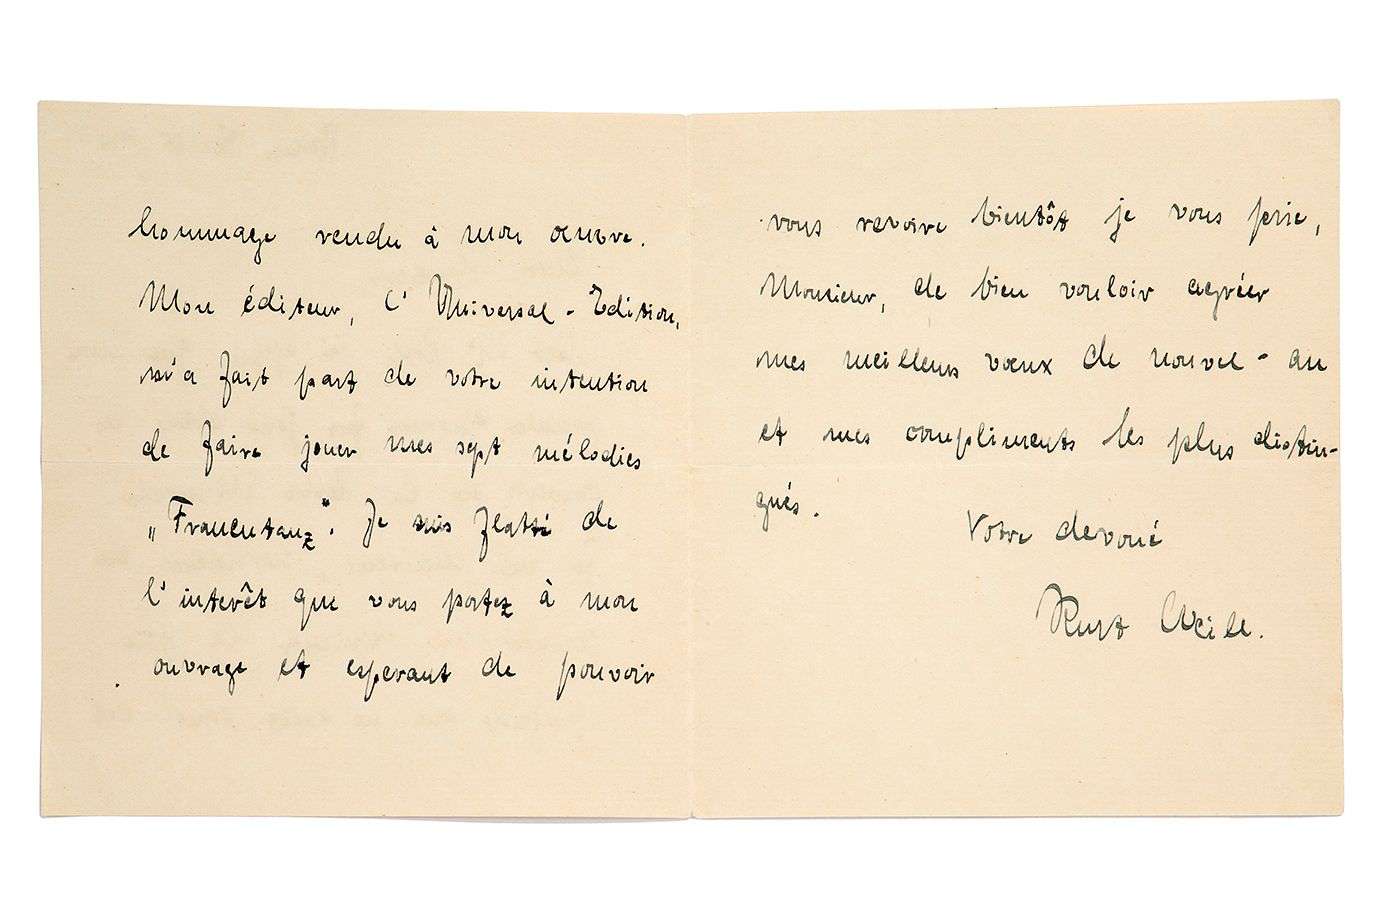 hommage rendu à mon oeuvre.
Mon éditeur, l'Universal-Edition,
m'a fait part de votre intention
de faire jouer mes sept mélodies
„Frauentanz". Je suis flatté de
l'interêt que vous portez à mon
ouvrage et esperant de pouvoir
vous revoire bientôt je vous prie,
Monsieur, de bien vouloir agréer
mes meilleurs vœux de nouvel-an
et mes compliments les plus distin-
gués.
Votre devoué
Kurt Weill.